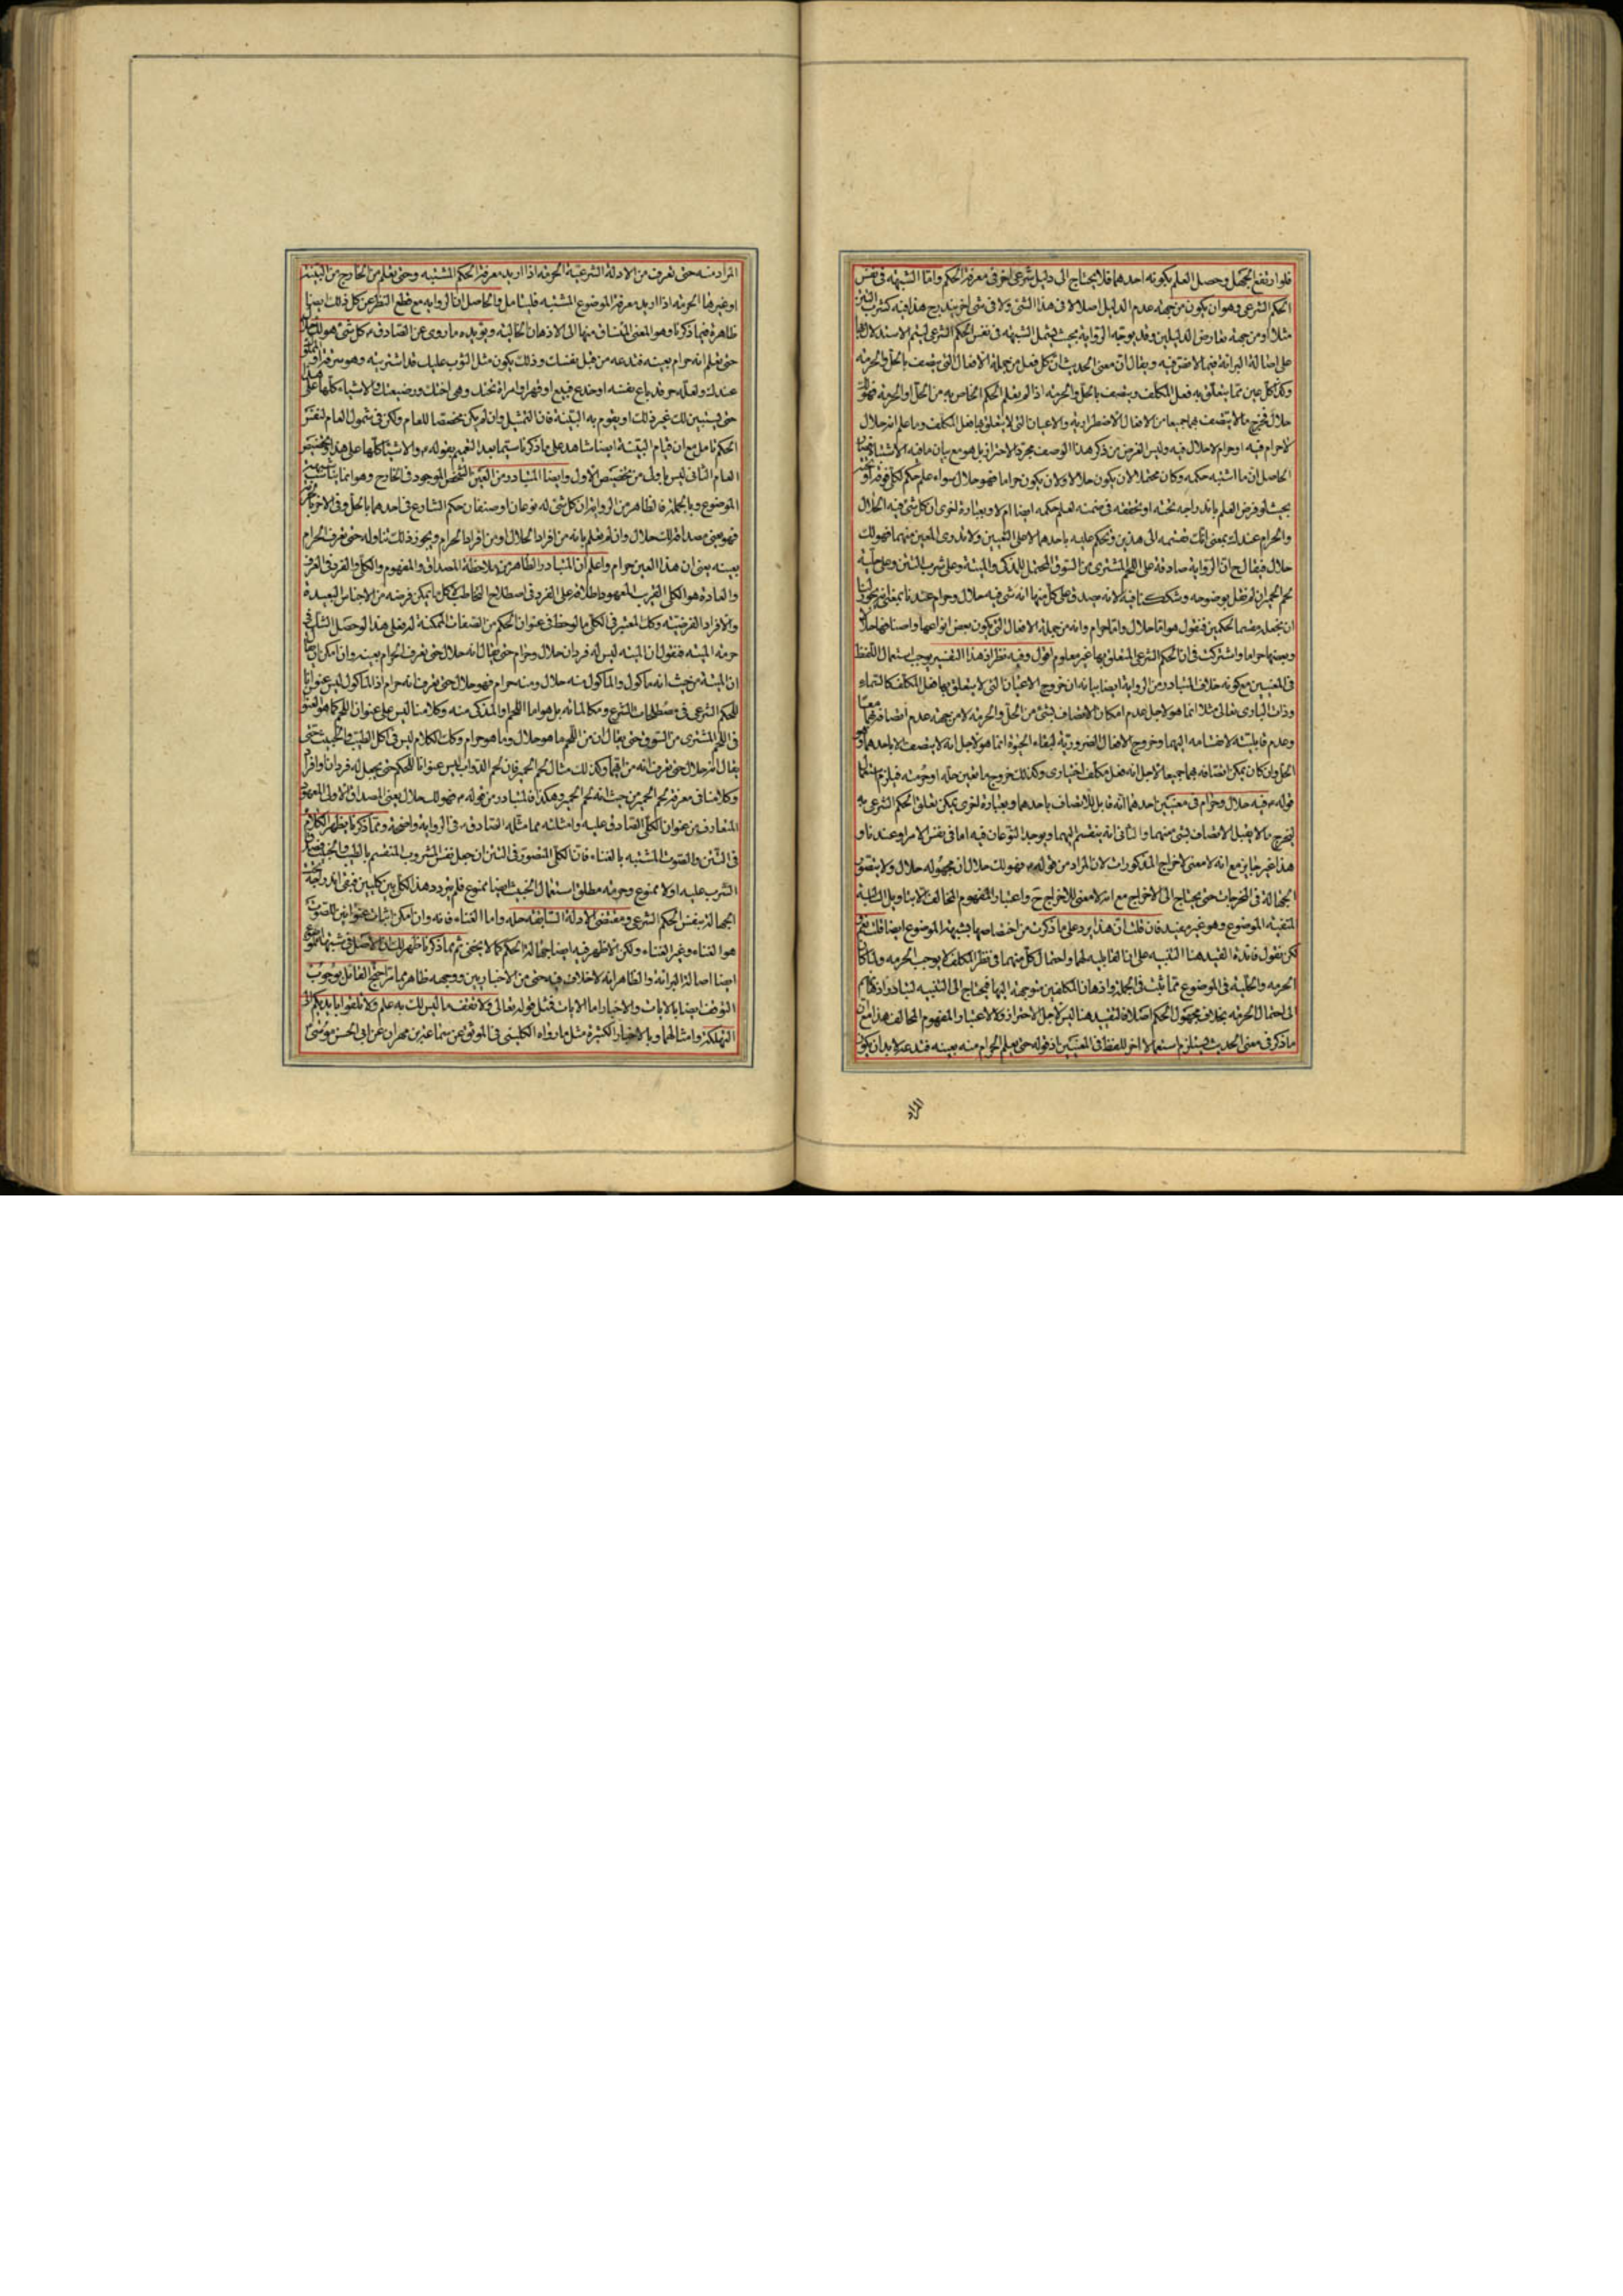 فلو ارتفع الجهل وحصل العلم بكونه احدهما فلا يحتاج الى دليل شرعى اخر فى معرفة الحكم واما الشبهة فى نفس
الحكم الشرعى وهو ان يكون من جهة عدم الدليل اصلا لا فى هذا الشئ ولا فى شئ اخر يندرج هذا فيه كشرب التتن
مثلا او من جهة تعارض الدليلين وقد يوجه الرواية بحيث يشمل الشبهة فى نفس الحكم الشرعى ليتم الاستدلال بها
على اصالة البرائة فيما لا نص فيه ويقال ان معنى الحديث ان كل فعل من جملة الافعال التى يتصف بالحل والحرمة
وكذا كل عين مما يتعلق به فعل المكلف ويتصف بالحل والحرمة اذا لم يعلم الحكم الخاص به من الحل او الحرمة فهو لك
حلال فخرج ما لا يتصف بهما جميعا من الافعال الاضطرارية والاعيان التى لا يتعلق بها فعل المكلف وما علم انه حلال
لا حرام فيه او حرام لا حلال فيه وليس الغرض من ذكر هذا الوصف مجرد الاحتراز بل هو مع بيان ما فيه الاشتباه
الحاصل ان ما اشتبه حكمه وكان محتملا لان يكون حلالا ولان يكون حراما فهو حلال سواء علم حكم كلى فوقه او تحته
بحيث لو فرض العلم باندراجه تحته او تحققه فى ضمنه لعلم حكمه ايضا ام لا وبعبارة اخرى ان كل شئ فيه الحلال
والحرام عندك بمعنى انك تقسمه الى هذين وتحكم عليه باحدهما لا على التعيين ولا تدرى المعين منهما فهو لك
حلال فيقال ح ان الرواية صادقة على اللحم المشترى من السوق المحتمل للمذكى والميتة وعلى شرب التتن وعلى
لحم الحمير ان لم نقل بوضوحه وشككنا فيه لانه يصدق على كل منها انه شئ فيه حلال وحرام عندنا بمعنى انه يجوز لنا
ان نجعله مقسما لحكمين فنقول هو اما حلال واما حرام وانه من جملة الافعال التى يكون بعض انواعها واصنافها حلالا
وبعضها حراما واشتركت فى ان الحكم الشرعى المتعلق بها غير معلوم اقول وفيه نظر اذ هذا التفسير يوجب استعمال اللفظ
فى المعنيين مع كونه خلاف المتبادر من الرواية ايضا بيانه ان خروج الاعيان التى لا يتعلق بها فعل المكلف كالسماء
وذات البارى تعالى مثلا انما هو لاجل عدم امكان الاتصاف بشئ من الحل والحرمة لا من جهة عدم اتصافه بهما معا
وعدم قابليته لانقسامه اليهما وخروج الافعال الضرورية لبقاء الحيوة انما هو لاجل انه لا يتصف الا باحدهما وهو
الحل وان كان يمكن اتصافه بهما جميعا لاجل انه فعل مكلف اختيارى وكذلك خروج ما تعين حله او حرمته فيلزم استعمال
قوله ع فيه حلال وحرام فى معنيين احدهما انه قابل للاتصاف باحدهما وبعبارة اخرى يمكن تعلق الحكم الشرعى به
ليخرج ما لا يقبل الاتصاف بشئ منهما والثانى انه ينقسم اليهما ويوجد النوعان فيه اما فى نفس الامر او عندنا و
هذا غير جايز مع انه لا معنى لاخراج المذكورات لان المراد من قوله ع فهو لك حلال ان مجهوله حلال ولا يتصور
الجهالة فى المخرجات حتى يحتاج الى الاخراج مع انه لا معنى للاخراج ح واعتبار المفهوم المخالف الا بتاويل السالبة
المنتفية الموضوع وهو غير مفيد فان قلت ان هذا يرد على ما ذكرت من اختصاصها بشبهة الموضوع ايضا قلت نعم
لكن نقول فائدة القيد هنا التنبيه على ان القابلية لهما واحتمال كل منهما فى نظر المكلف لا يوجب الحرمة ولما كان
الحرمة والحلية فى الموضوع مما ثبت فى الجملة واذهان المكلفين متوجهة اليها فيحتاج الى التنبيه لتبادر اذهانهم
الى احتمال الحرمة بخلاف مجهول الحكم اصلا فالتقييد هنا ليس لاجل الاحتراز ولا لاعتبار المفهوم المخالف هذا مع ان
ما ذكر فى معنى الحديث يستلزم استعمالا اخر للفظ فى المعنيين اذ قوله حتى يعلم الحرام منه بعينه فتدعه لا بد ان يكون
المراد
المراد منه حتى تعرف من الادلة الشرعية الحرمة اذا اريد معرفة الحكم المشتبه وحتى يعلم من الخارج من البينة
او غيرها الحرمة اذا اريد معرفة الموضوع المشتبه فليتامل والحاصل ان الرواية مع قطع النظر عن كل ذلك ايضا
ظاهرة فيما ذكرنا وهو المعنى المنساق منها الى الاذهان الخالية ويؤيده ما روى عن الصادق ع كل شئ هو لك حلال
حتى تعلم انه حرام بعينه فتدعه من قبل نفسك وذلك يكون مثل الثوب عليك قد اشتريته وهو سرقة او المملوك
عندك ولعله حر قد باع نفسه او خدع فبيع او قهر او امراة تحتك وهى اختك ورضيعتك والاشياء كلها على هذا
حتى يستبين لك غير ذلك او يقوم به البينة فان التمثيل وان لم يكن مخصصا للعام ولكن فى شمول العام لنفس
الحكم تامل مع ان قيام البينة ايضا شاهد على ما ذكرنا سيما بعد التعميم بقوله ع والاشياء كلها على هذا وتخصيص
العام الثانى ليس باولى من تخصيص الاول وايضا المتبادر من العين الشخص الموجود فى الخارج وهو انما يناسب شبهة
الموضوع وبالجملة فالظاهر من الرواية ان كل شئ له نوعان او صنفان حكم الشارع فى احدهما بالحل وفى الاخر بالحرمة
فهو يعنى مصداقه لك حلال وان لم يعلم بانه من افراد الحلال او من افراد الحرام ويجوز ذلك تناوله حتى تعرف الحرام
بعينه يعنى ان هذا العين حرام واعلم ان المتبادر والظاهر من ملاحظة المصداق والمفهوم والكلى والفرد فى العرف
والعادة هو الكلى القريب المعهود اطلاقه على الفرد فى اصطلاح التخاطب لا كل ما يمكن فرضه من الاجناس البعيدة
والافراد الفرضية وكك المعتبر فى الكلى ما لوحظ فى عنوان الحكم من الصفات الممكنة له فعلى هذا لو حصل الشك فى
حرمة الميتة فنقول ان الميتة ليس له فردان حلال وحرام حتى يقال انه حلال حتى تعرف الحرام بعينه وان امكن ان يقال
ان الميتة من حيث انه ماكول والماكول منه حلال ومنه حرام فهو حلال حتى يعرف انه حرام اذ الماكول ليس عنوانا
للحكم الشرعى فى مصطلحات الشرع ومكالماته بل هو اما اللحم او المذكى منه وكلامنا ليس على عنوان اللحم كما هو
فى اللحم المشترى من السوق حتى يقال ان من اللحم ما هو حلال وما هو حرام وكك الكلام ليس فى اكل الطيب والخبيث حتى
يقال انه حلال حتى يعرف انه من ايهما وكذلك مثال لحم الحمير فان لحم الدواب ليس عنوانا للحكم حتى يجعل له فردان وافراد
وكلامنا فى معرفة لحم الحمير من حيث انه لحم الحمير وهكذا فالمتبادر من قوله ع فهو لك حلال يعنى المصداق الاولى المعهود
المتعارف من عنوان الكلى الصادق عليه وامثلته مما مثله الصادق ع فى الرواية واضحة ومما ذكرنا يظهر الكلام
فى التتن والصوت المشتبه بالغناء فان الكلى المتصور فى التتن ان جعل نفس المشروب المنقسم بالطيب والخبيث فصدق
الشرب عليه اولا ممنوع وحرمة مطلق استعمال الخبيث ايضا ممنوع فلم يتردد هذا الكلى بين كليين فبقى اندراجه تحت
الجهالة بنفس الحكم الشرعى ومقتضى الادلة السابقة حله واما الغناء فانه وان امكن اثبات عنوانين للصوت
هو الغناء وغير الغناء ولكن الاظهر فيه ايضا جهالة الحكم كما لا يخفى ثم مما ذكرنا ظهر لك ان الاصل فى شبهة الموضوع
ايضا اصالة البرائة والظاهر انه لا خلاف فيه حتى من الاخباريين ووجهه ظاهر مما مر احتج القائل بوجوب
التوقف ايضا بالايات والاخبار اما الايات فمثل قوله تعالى ولا تقف ما ليس لك به علم ولا تلقوا بايديكم الى
التهلكة وامثالهما وبالاخبار الكثيرة مثل ما رواه الكلينى فى الموثق عن سماعة بن مهران عن ابى الحسن موسى